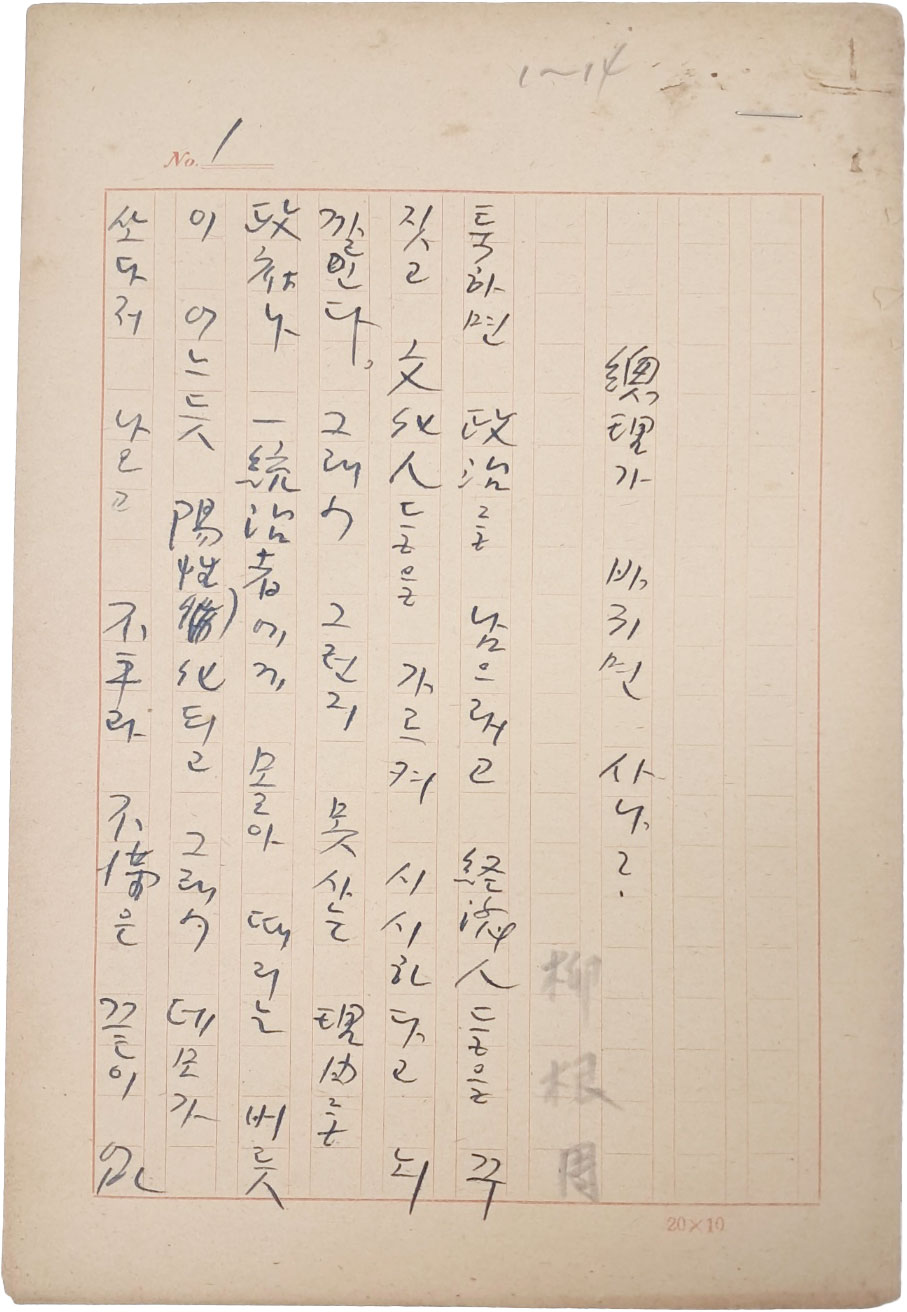 1~14
No. 1
總理가 바뀌면 사나?
柳根周
툭하면 政治를 남으래고 経済人들을 꾸
짓고 文化人들을 가르켜 시시하다고 뇌
깔인다. 그래서 그런지 못사는 理由를
政治나 一統治者에게 몰아 때리는 버릇
이 어느듯 陽性化되고 그래서 데모가
쏘다저 나오고 不平과 끝이 없
20×10